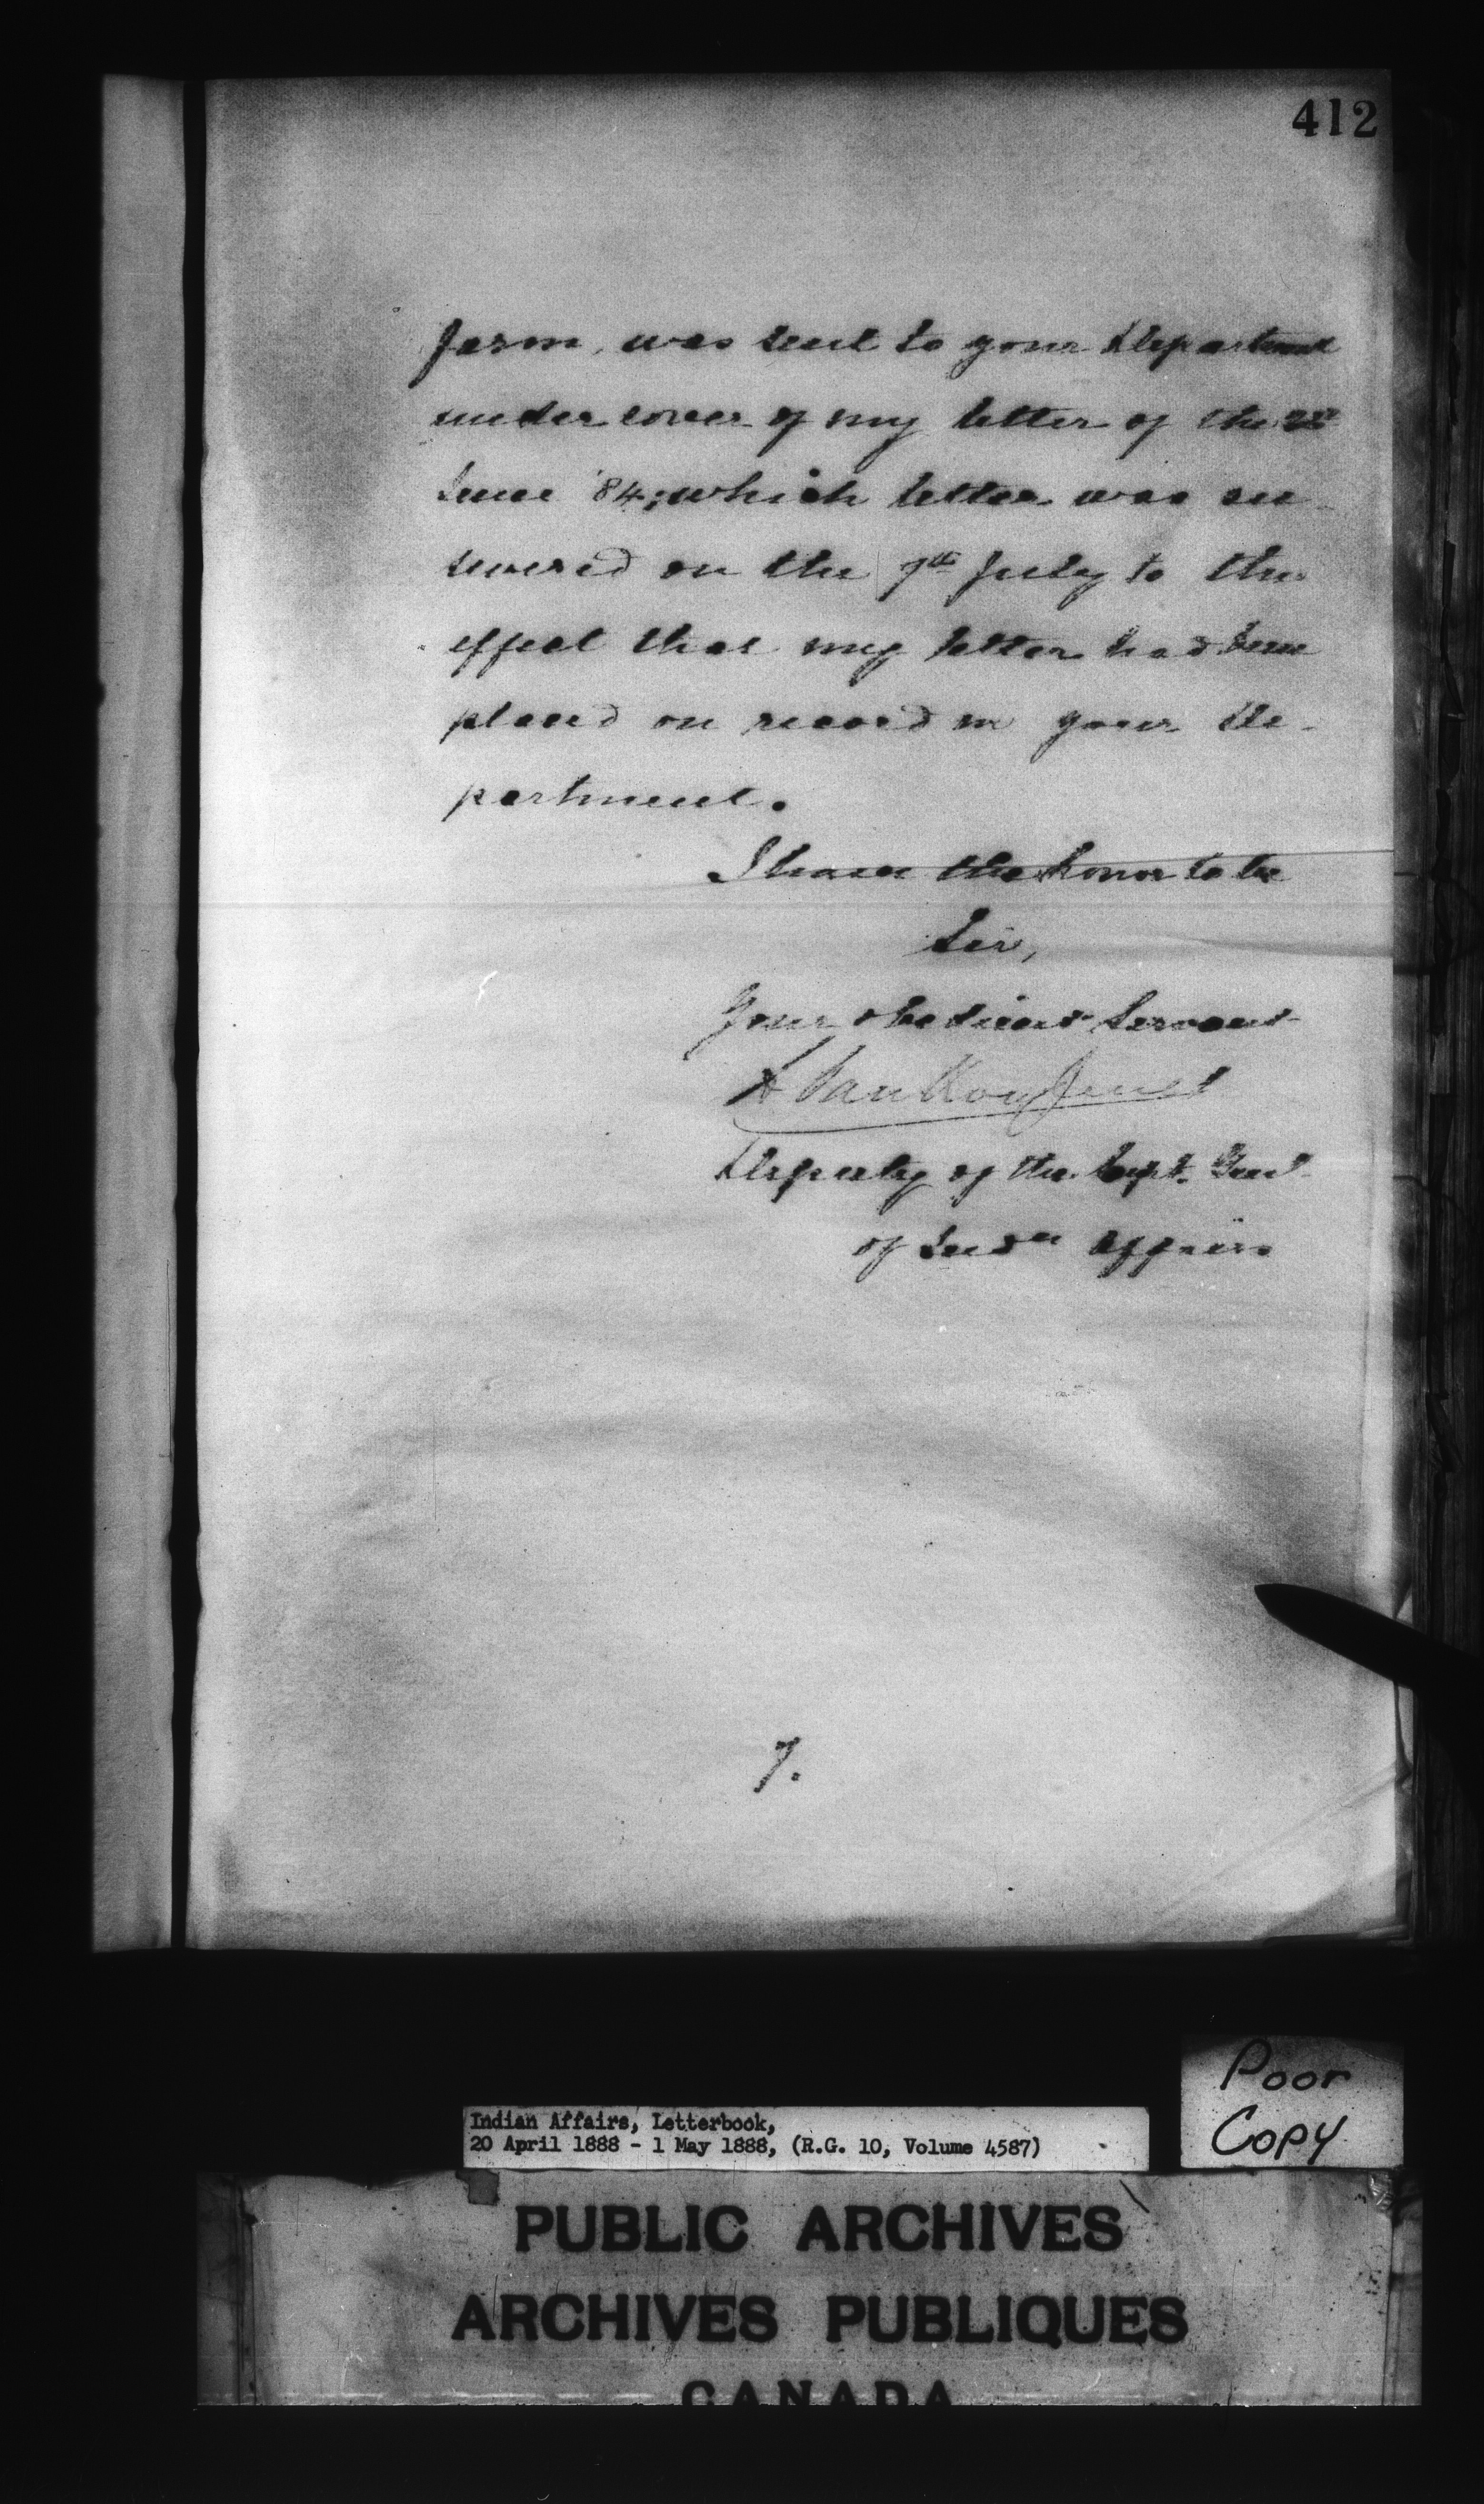 412
form, was sent to your Department
under cover of my letter of the
June '84; which letter was an-
swered on the 7th July to the
effect that my letter had been
placed on record in your De-
partment.
I have the honor to be
Sir,
Your obedient Servant
L VanKoughnet
Deputy of the Supt. Genl
of Indn Affairs
7.
Poor
Copy
Indian Affairs, Letterbook,
20 April 1888 - 1 May 1888, (R.G. 10, Volume 4587)
PUBLIC ARCHIVES
ARCHIVES PUBLIQUES
CANADA